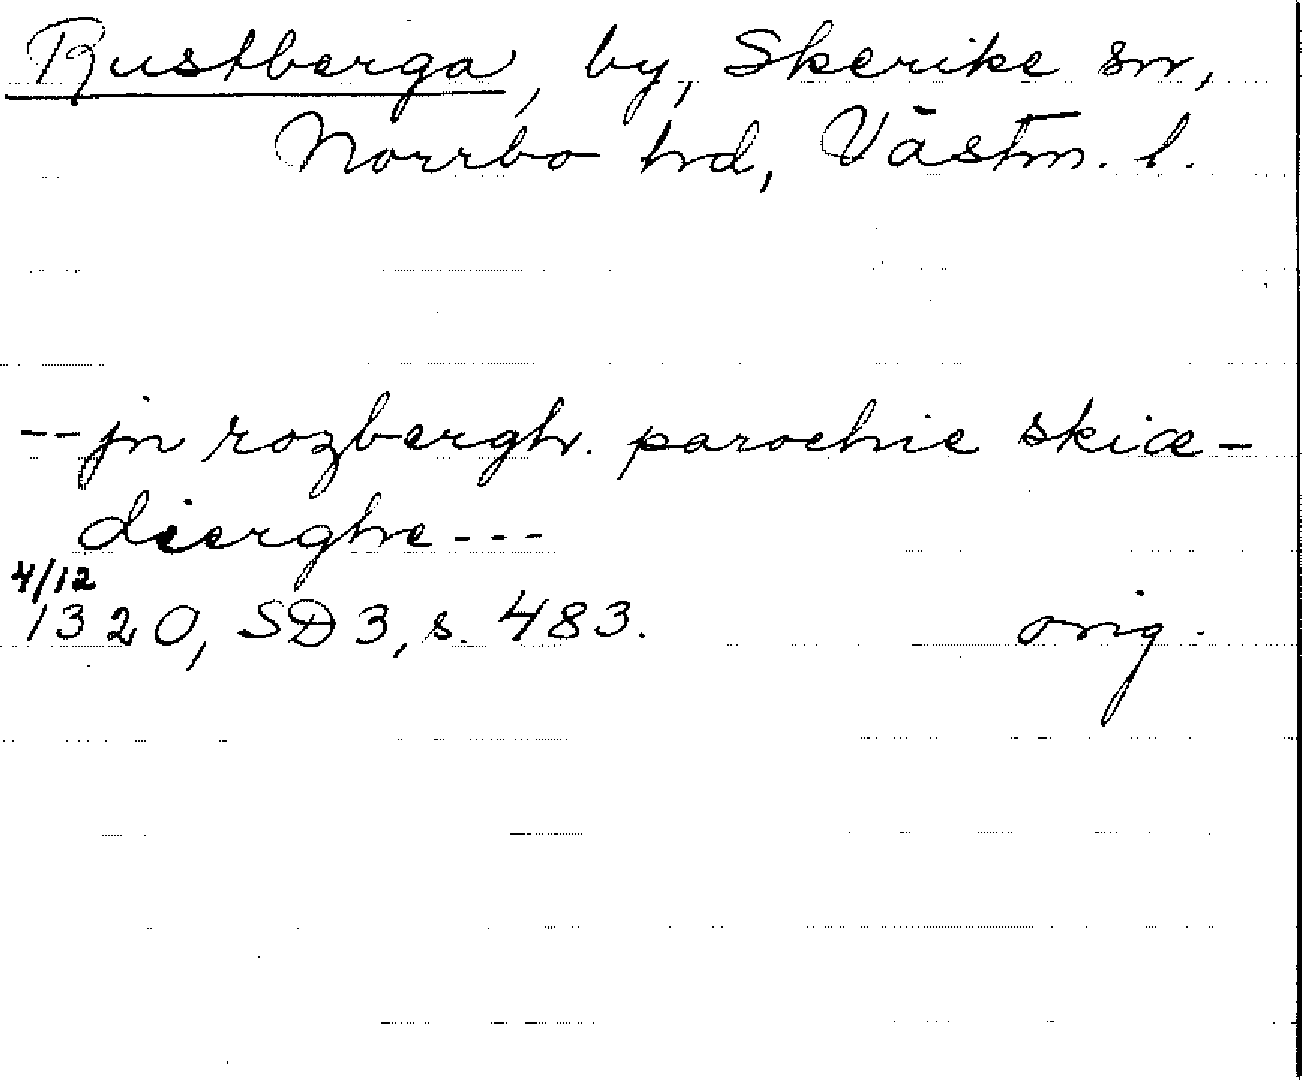 Rustberga, by, Skerike sn,
Norrbo hd, Västm. l.
-- jn rozbergh. parochie skiæ-
dierghe ---
4/12
1320, SD 3, s. 483. orig.